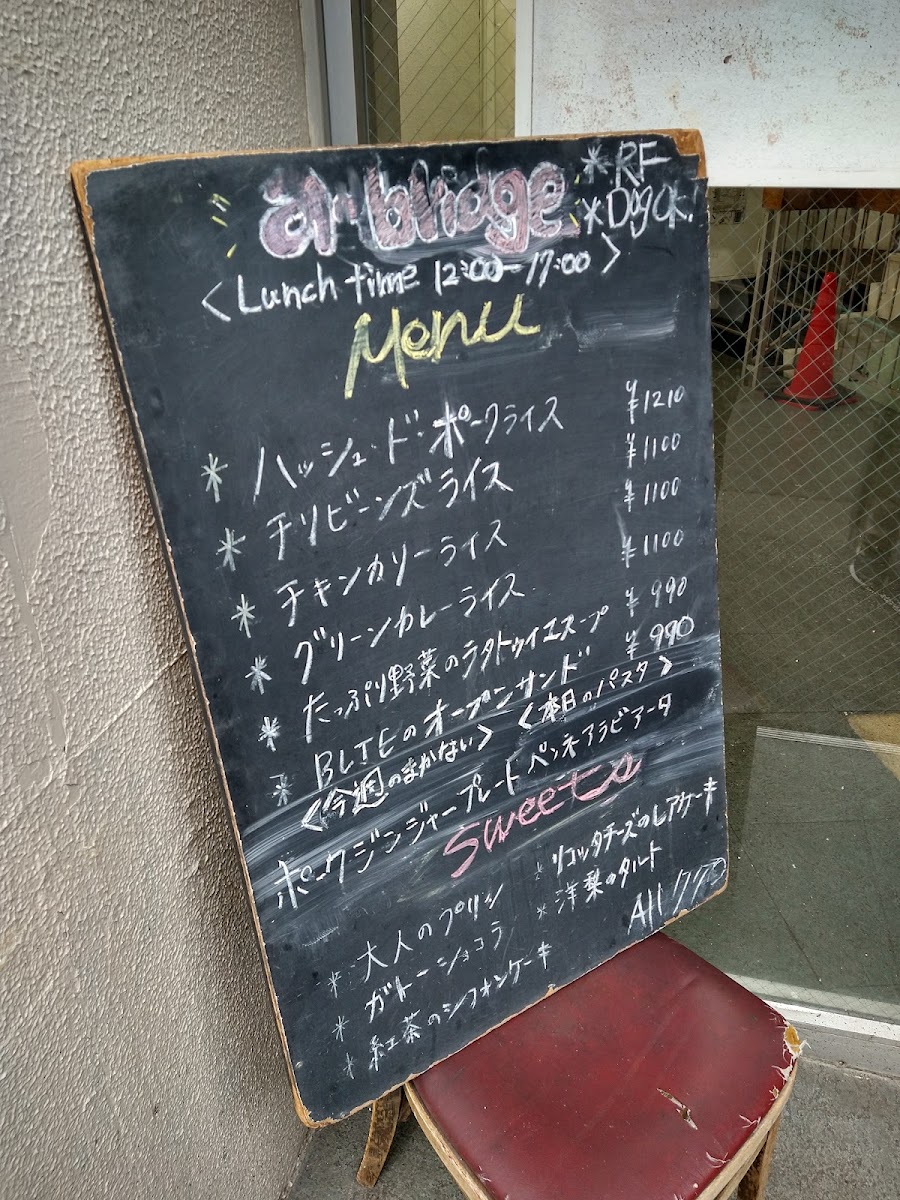 ar bridge
*RF
*Dog ok!
<Lunch time 12:00-17:00>
Menu
* ハッシュ・ド・ポークライス ¥1210
* チリビーンズライス ¥1100
* チキンカリーライス ¥1100
* グリーンカレーライス ¥1100
* たっぷり野菜のラタトゥイユスープ ¥990
* BLTEのオープンサンド ¥990
<今週のまかない> <本日のパスタ>
ポークジンジャープレート ペンネアラビアータ
Sweets
* 大人のプリン * リコッタチーズのレアケーキ
* ガトーショコラ * 洋梨のタルト
* 紅茶のシフォンケーキ All 770